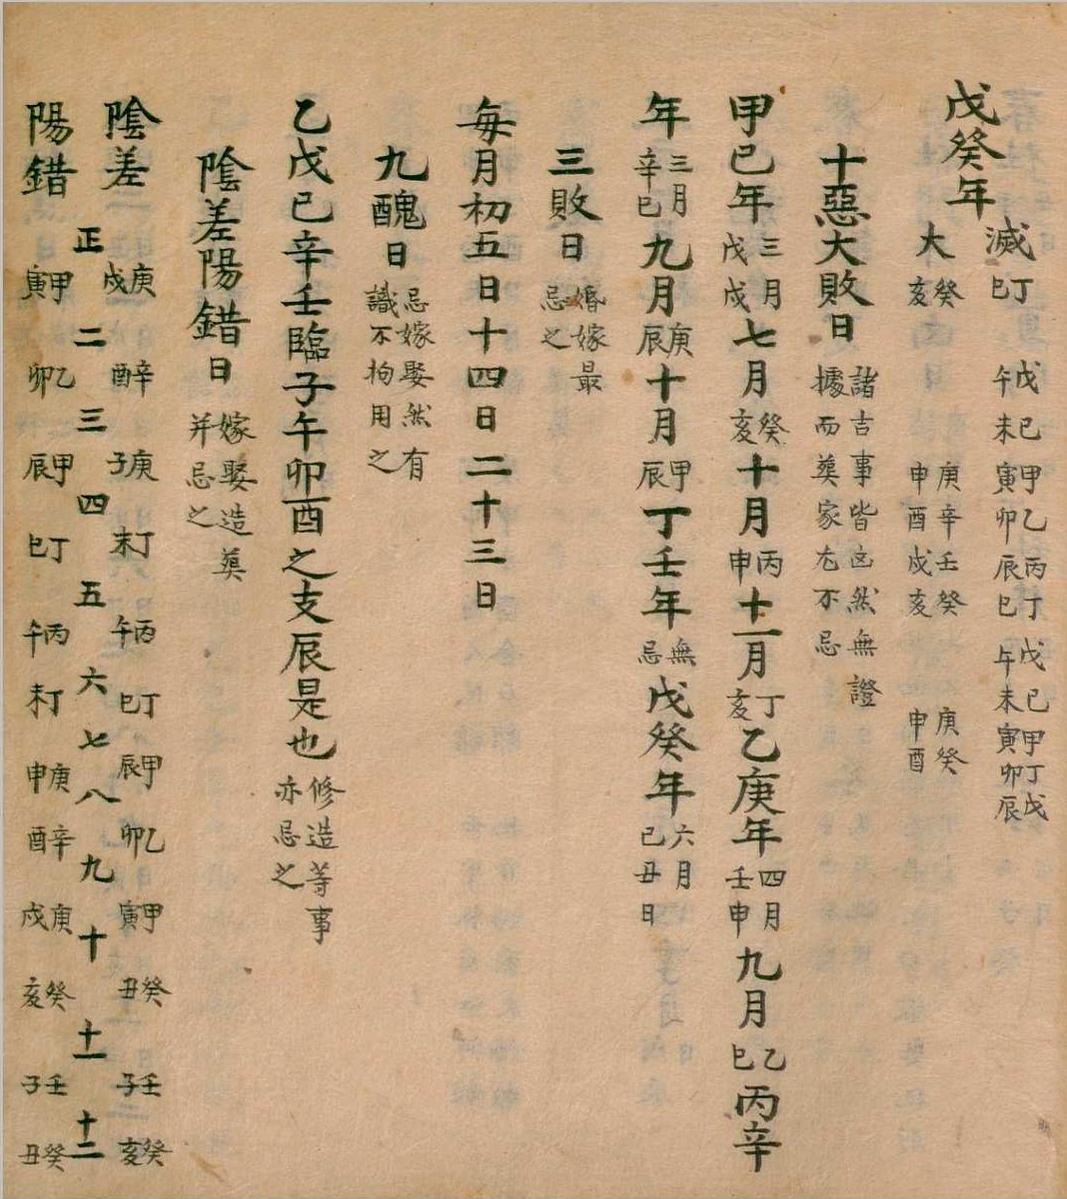 戊癸年
滅 丁巳 戊午 己未 甲寅 乙卯 丙辰 丁巳 戊午 己未 甲寅 丁卯 戊辰
大 癸亥 庚申 辛酉 壬戌 癸亥 庚申 癸酉
十惡大敗日 諸吉事皆凶然無證據而葬家尤不忌
甲己年 三月戊戌 七月 癸亥 十月 丙申 十一月 丁亥 乙庚年 四月壬申 九月 乙巳 丙辛
年 三月辛巳 九月 庚辰 十月 甲辰 丁壬年 無忌 戊癸年 六月己丑日
三敗日 婚嫁最忌之
每月初五日十四日二十三日
九醜日 忌嫁娶然有識不拘用之
乙戊己辛壬臨子午卯酉之支辰是也 修造等事亦忌之
陰差陽錯日 嫁娶造葬并忌之
陰差 庚戌 辛酉 庚子 丁未 丙午 丁巳 甲辰 乙卯 甲寅 癸丑 壬子 癸亥
正 二 三 四 五 六 七 八 九 十 十一 十二
陽錯 甲寅 乙卯 甲辰 丁巳 丙午 丁未 庚申 辛酉 庚戌 癸亥 壬子 癸丑